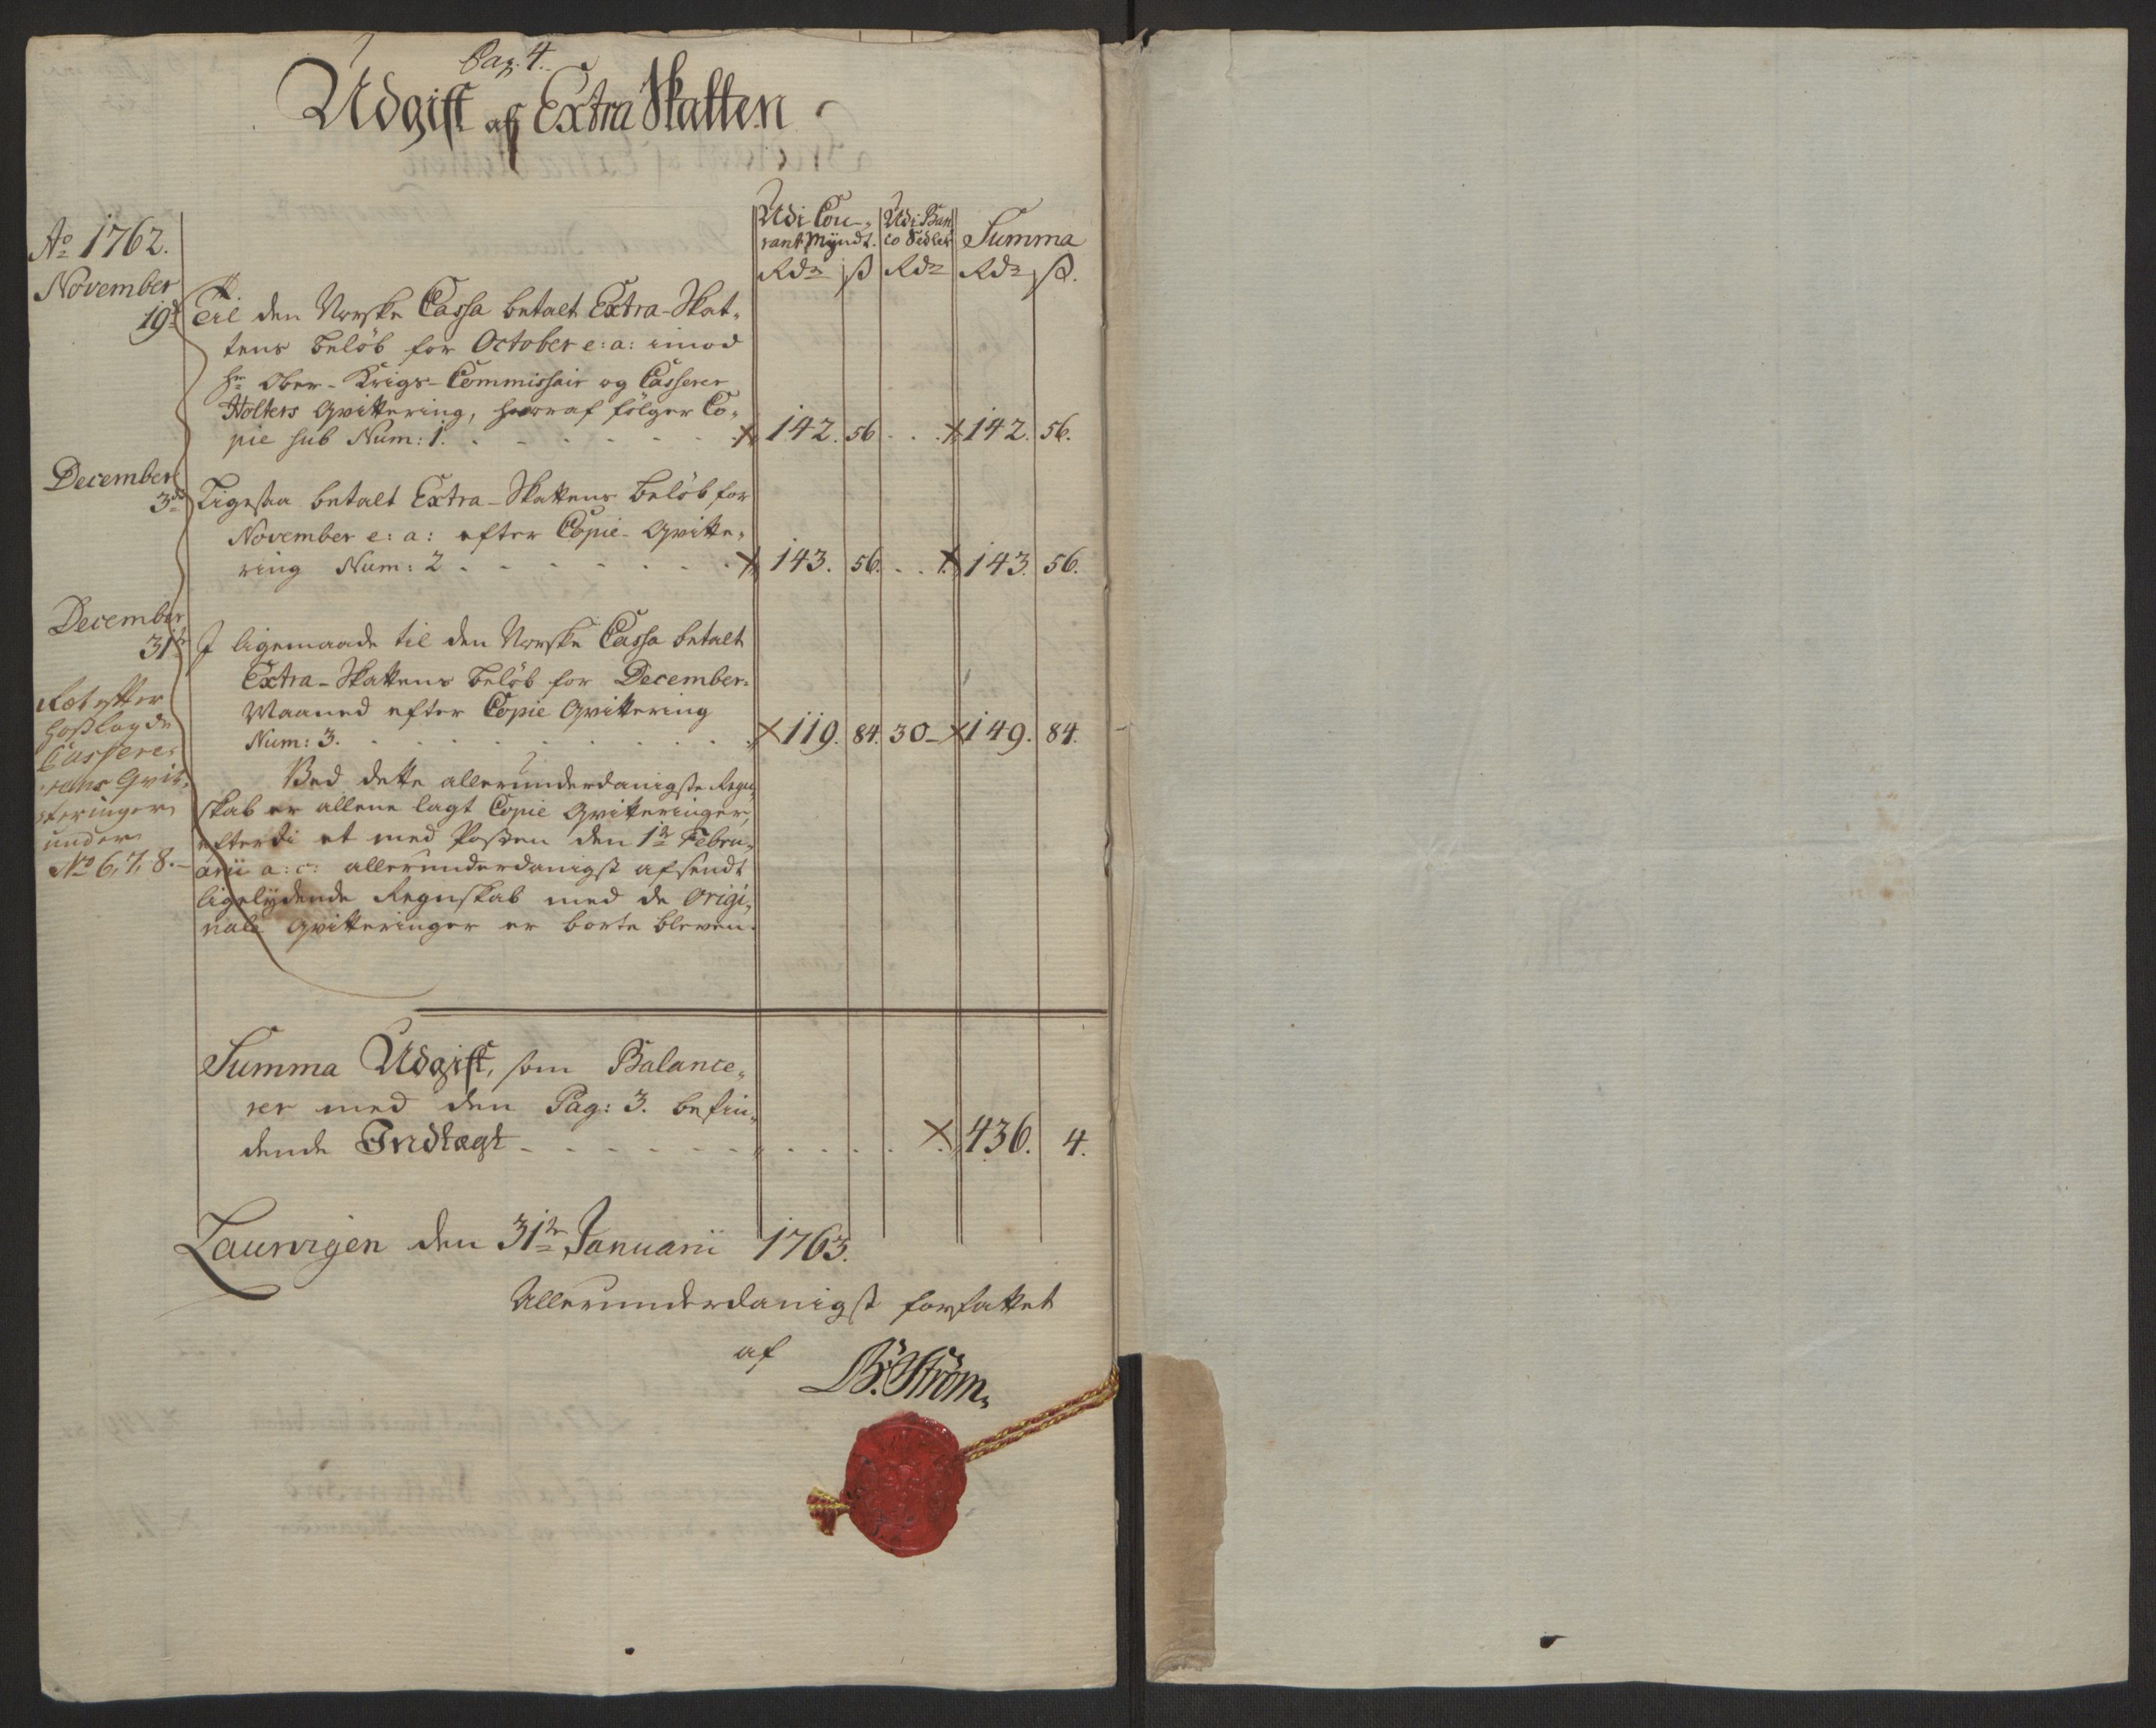 Pag: 4.
Udgift af Extra Skatten
Udi Cou- Udi Ban
rant Myndt. co Sedler Summa
Rdr ß Rdr Rdr ß.
Ao 1762.
November
19d Til den Norske Cassa betalt Extra-Skat-
tens beløb for October e: a: imod
Hr Ober-Krigs-Commissair og Casserer
Holters Qvittering, hvoraf følger Co-
pie sub Num: 1. 142. 56 142. 56.
December
3d Ligesaa betalt Extra-Skattens beløb for
November e: a: efter Copie-Qvitte-
ring Num: 2 143. 56. 143. 56.
December
31te I ligemaade til den Norske Cassa betalt
Extra-Skattens beløb for December-
Maaned efter Copie Qvittering
Num: 3. 119. 84. 30 - 149. 84.
Ræt efter
hoslagde
Cassere-
rens Qvit-
teringer
under
No 6, 7, 8. -
Ved dette allerunderdanigste Regn-
skab er allene lagt Copie Qvitteringer,
efterdi et med Posten den 1te Febru-
arii a: c: allerunderdanigst afsendt
ligelydende Regnskab med de Origi-
nale Qvitteringer er borte bleven.
Summa Udgift, som Balance-
rer med den Pag: 3. befin-
dende Indtægt 436. 4.
Laurvigen den 31te Januarii 1763.
Allerunderdanigst forfattet
af
B. Strøm.